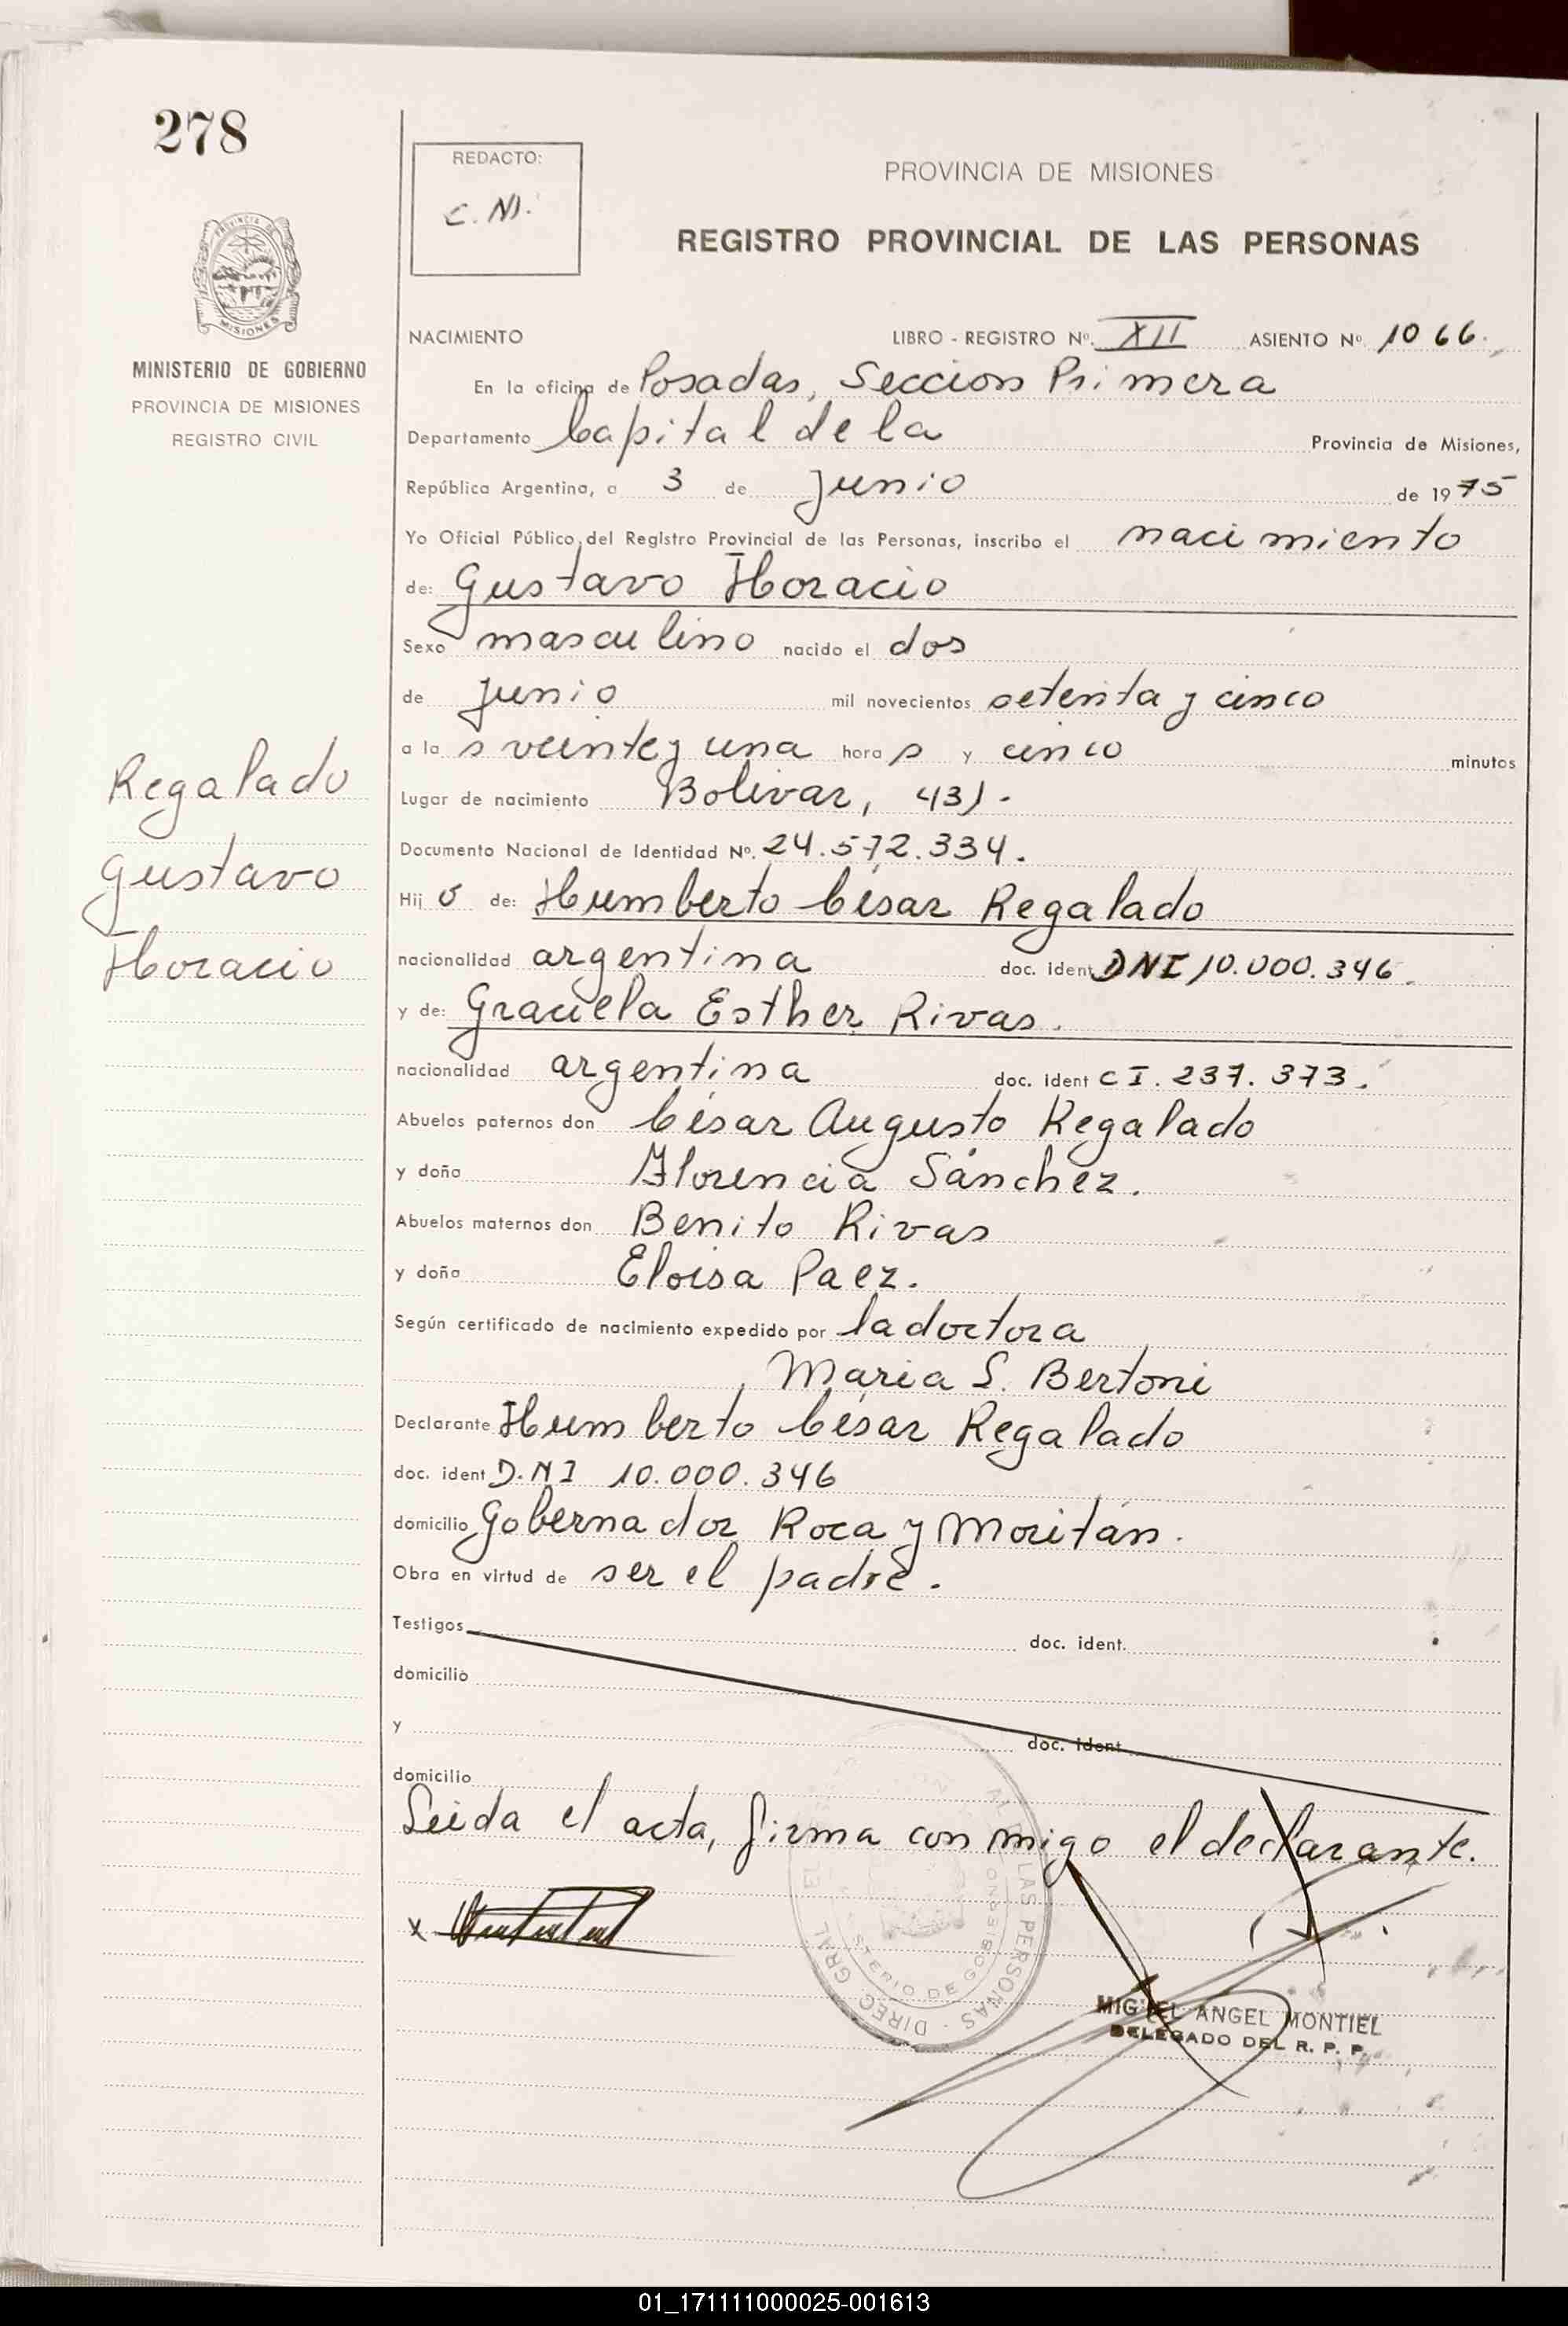 278
REDACTO:
C. M.
PROVINCIA DE MISIONES
REGISTRO PROVINCIAL DE LAS PERSONAS
PROVINCIA DE
MISIONES
MINISTERIO DE GOBIERNO
PROVINCIA DE MISIONES
REGISTRO CIVIL
NACIMIENTO LIBRO - REGISTRO Nº. XII ASIENTO Nº 1066.
En la oficina de Posadas, Seccion Primera
Departamento Capital de la Provincia de Misiones,
República Argentina, a 3 de Junio de 1975
Yo Oficial Público del Registro Provincial de las Personas, inscribo el nacimiento
de: Gustavo Horacio
Sexo masculino nacido el dos
de Junio mil novecientos setenta y cinco
a la s veinte y una hora s y cinco minutos
Lugar de nacimiento Bolívar, 431.
Documento Nacional de Identidad Nº. 24.572.334.
Hij o de: Humberto César Regalado
nacionalidad argentina doc. ident DNI 10.000.346.
y de: Graciela Esther Rivas.
nacionalidad argentina doc. ident CI. 237.373.
Abuelos paternos don César Augusto Regalado
y doña Florencia Sánchez.
Abuelos maternos don Benito Rivas
y doña Eloisa Paez.
Según certificado de nacimiento expedido por la doctora
Maria S. Bertoni
Declarante Humberto César Regalado
doc. ident D.NI 10.000.346
domicilio Gobernador Roca y Moritán.
Obra en virtud de ser el padre.
Testigos doc. ident.
domicilio
y doc. ident
domicilio
Leida el acta, firma conmigo el declarante.
x
DIREC. GRAL. EL LAS PERSONAS
STERIO DE GOBIERNO
MIGUEL ANGEL MONTIEL
DELEGADO DEL R. P. P.
Regalado
Gustavo
Horacio
01_171111000025-001613